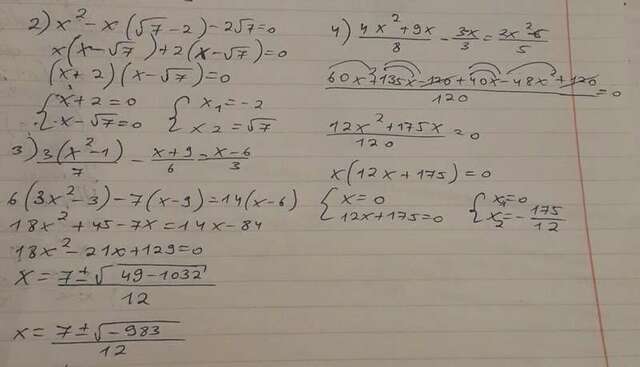 2) x² - x(√7 - 2) - 2√7 = 0
x(x - √7) + 2(x - √7) = 0
(x + 2)(x - √7) = 0
{ x + 2 = 0
x - √7 = 0
{ x₁ = -2
x₂ = √7
3) 3(x² - 1)/7 - (x + 9)/6 = (x - 6)/3
6(3x² - 3) - 7(x - 9) = 14(x - 6)
18x² + 45 - 7x = 14x - 84
18x² - 21x + 129 = 0
x = (7 ± √(49 - 1032))/12
x = (7 ± √(-983))/12
4) (4x² + 9x)/8 - 3x/3 = /5
(60x² + 135x - 120 + 40x - 48x² + 120)/120 = 0
(12x² + 175x)/120 = 0
x(12x + 175) = 0
{ x = 0
12x + 175 = 0
{ x₁ = 0
x₂ = -175/12